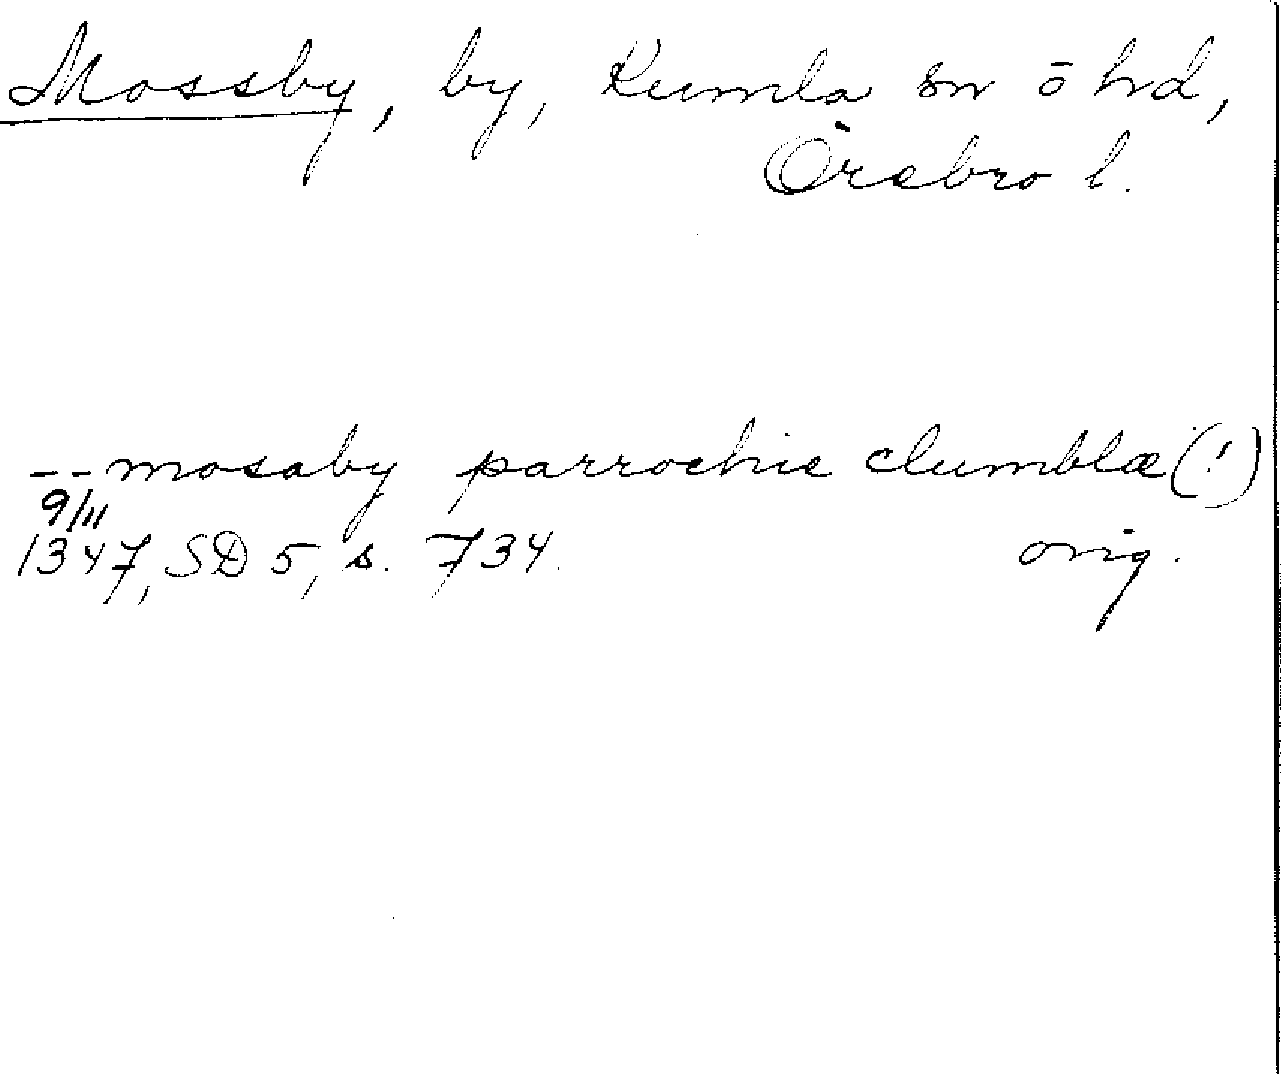 Mossby, by, Kumla sn o hd,
Örebro l.
-- mosaby parrochie clumblæ (!)
9/11
1347, SD 5, s. 734. orig.